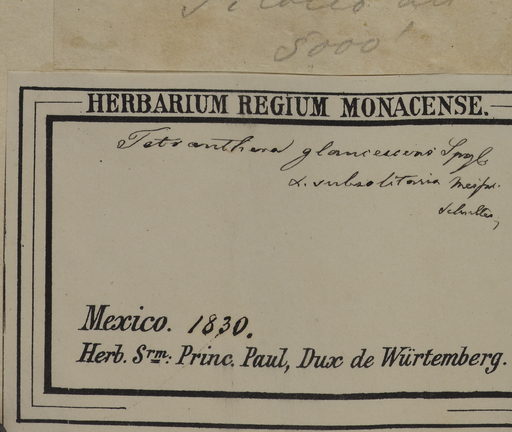 5000'
HERBARIUM REGIUM MONACENSE.
Tetranthera glaucescens Sprgl
α. subsolitaria Meisn.
Mexico. 1830.
Herb. Srm: Princ. Paul, Dux de Würtemberg.